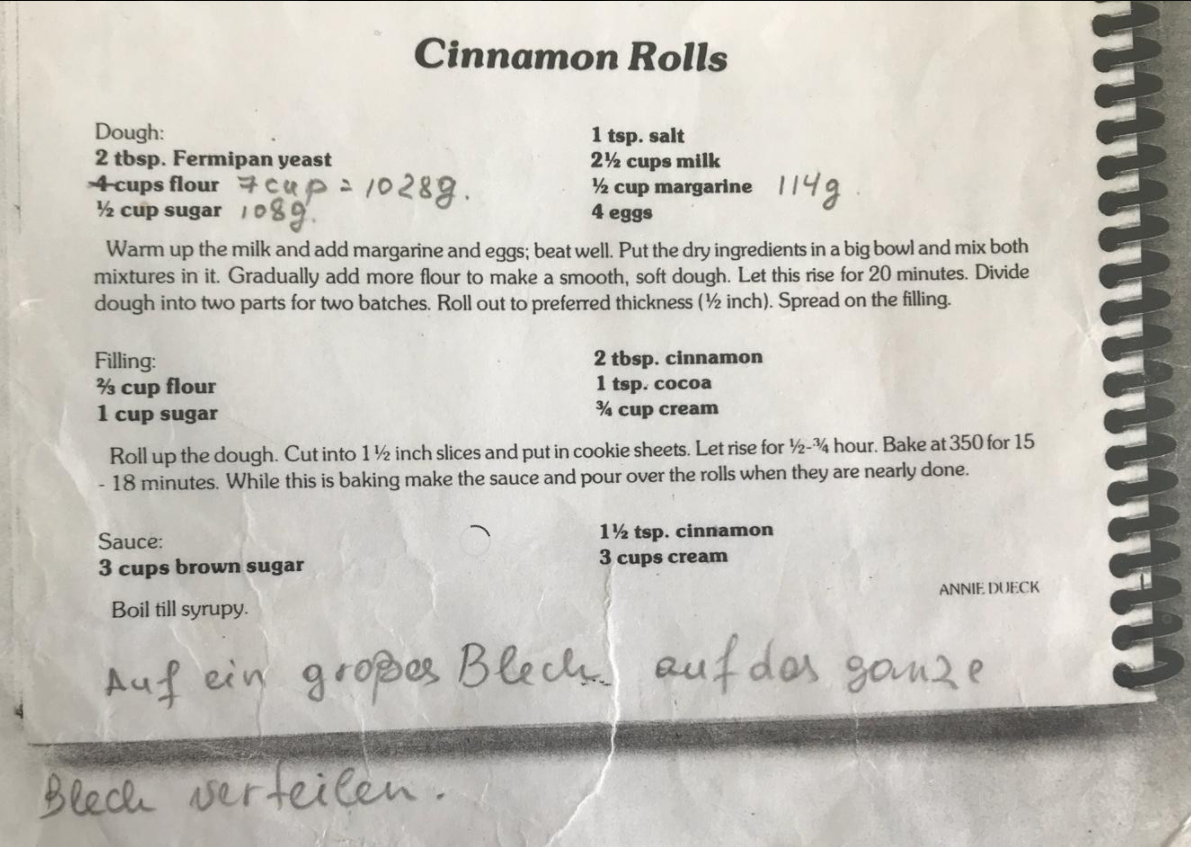 Cinnamon Rolls
Dough:
2 tbsp. Fermipan yeast
4 cups flour 7 cup = 1028g.
½ cup sugar 108g.
1 tsp. salt
2½ cups milk
½ cup margarine 114g.
4 eggs
Warm up the milk and add margarine and eggs; beat well. Put the dry ingredients in a big bowl and mix both
mixtures in it. Gradually add more flour to make a smooth, soft dough. Let this rise for 20 minutes. Divide
dough into two parts for two batches. Roll out to preferred thickness (½ inch). Spread on the filling.
Filling:
⅔ cup flour
1 cup sugar
2 tbsp. cinnamon
1 tsp. cocoa
¾ cup cream
Roll up the dough. Cut into 1½ inch slices and put in cookie sheets. Let rise for ½-¾ hour. Bake at 350 for 15
- 18 minutes. While this is baking make the sauce and pour over the rolls when they are nearly done.
Sauce:
3 cups brown sugar
1½ tsp. cinnamon
3 cups cream
Boil till syrupy.
ANNIE DUECK
Auf ein großes Blech auf das ganze
Blech verteilen.